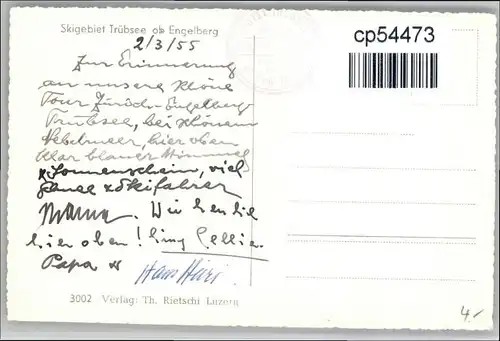 Skigebiet Trübsee ob Engelberg
2/3/55
Zur Erinnerung
an unsere schöne
Tour Zürich-Engelberg
Trübsee, bei schönem
Nebelmeer, hier oben
klar blauer Himmel
Sonnenschein, viel
Skifahrer
Mama.
hier oben!
Papa
3002 Verlag: Th. Rietschi Luzern
cp54473
4.-